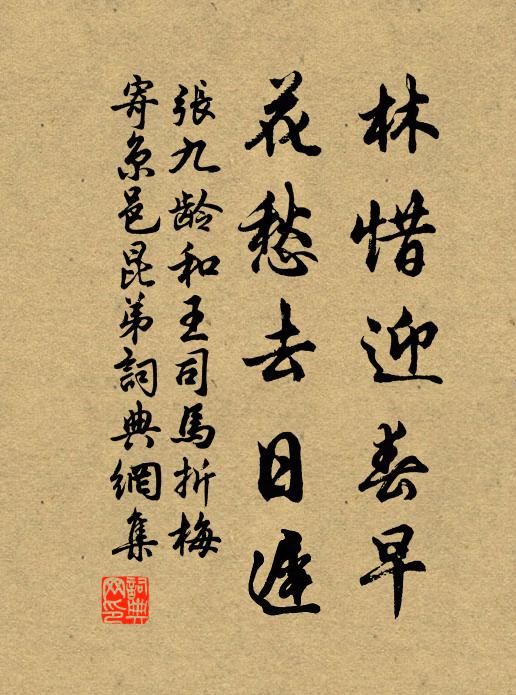 林惜迎春早
花愁去日遲
張九龄和王司馬折梅
寄京邑昆弟詞典網集
詞典网印